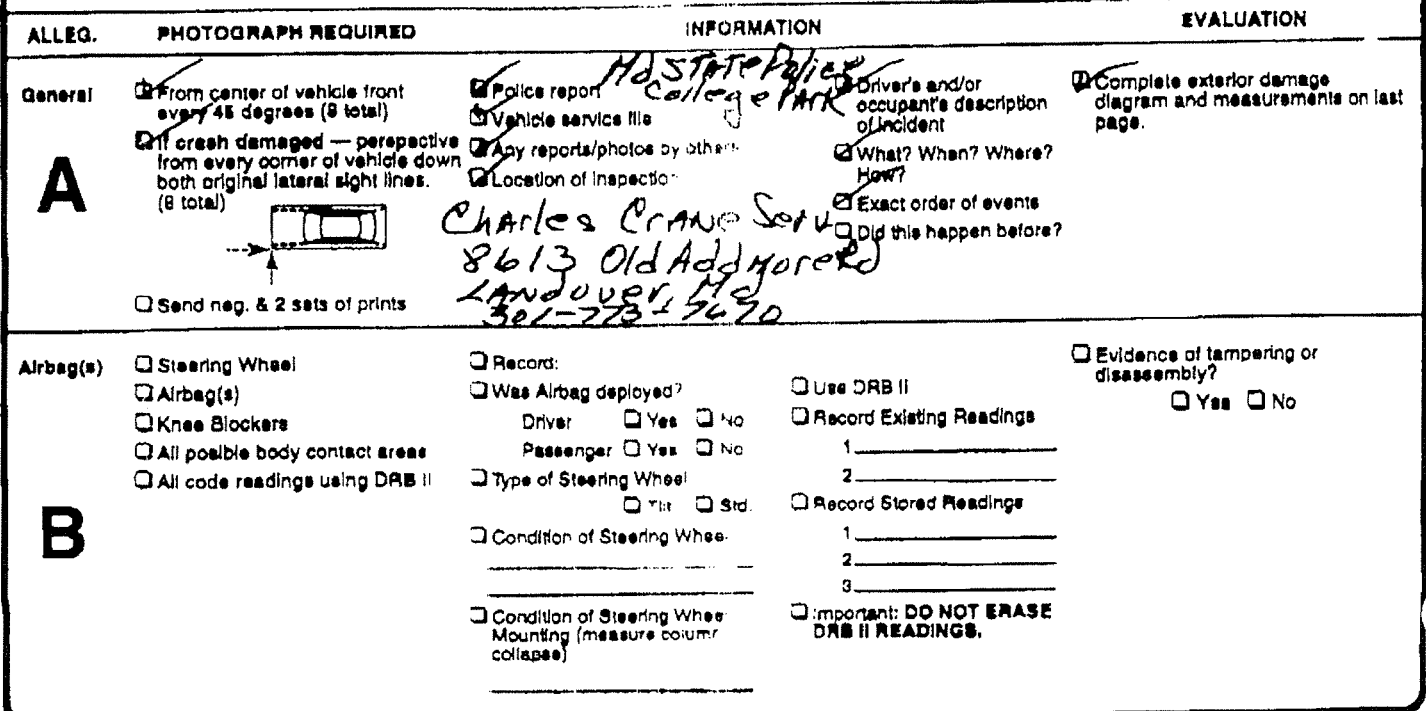 ALLEG. PHOTOGRAPH REQUIRED INFORMATION EVALUATION
General
A
From center of vehicle front
every 45 degrees (8 total)
If crash damaged — perspective
from every corner of vehicle down
both original lateral sight lines.
(8 total)
Send neg. & 2 sets of prints
Md STATE Police
College PARK
Police report
Vehicle service file
Any reports/photos by others
Location of inspection
Charles Crane Serv
8613 Old Addmore Rd
LANdover, Md
301-773-7670
Driver's and/or
occupant's description
of incident
What? When? Where?
How?
Exact order of events
Did this happen before?
Complete exterior damage
diagram and measurements on last
page.
Airbag(s)
B
Steering Wheel
Airbag(s)
Knee Blockers
All posible body contact areas
All code readings using DRB II
Record:
Was Airbag deployed?
Driver Yes No
Passenger Yes No
Type of Steering Wheel
Tilt Std.
Condition of Steering Wheel
Condition of Steering Wheel
Mounting (measure column
collapse)
Use DRB II
Record Existing Readings
1
2
Record Stored Readings
1
2
3
Important: DO NOT ERASE
DRB II READINGS.
Evidence of tampering or
disassembly?
Yes No